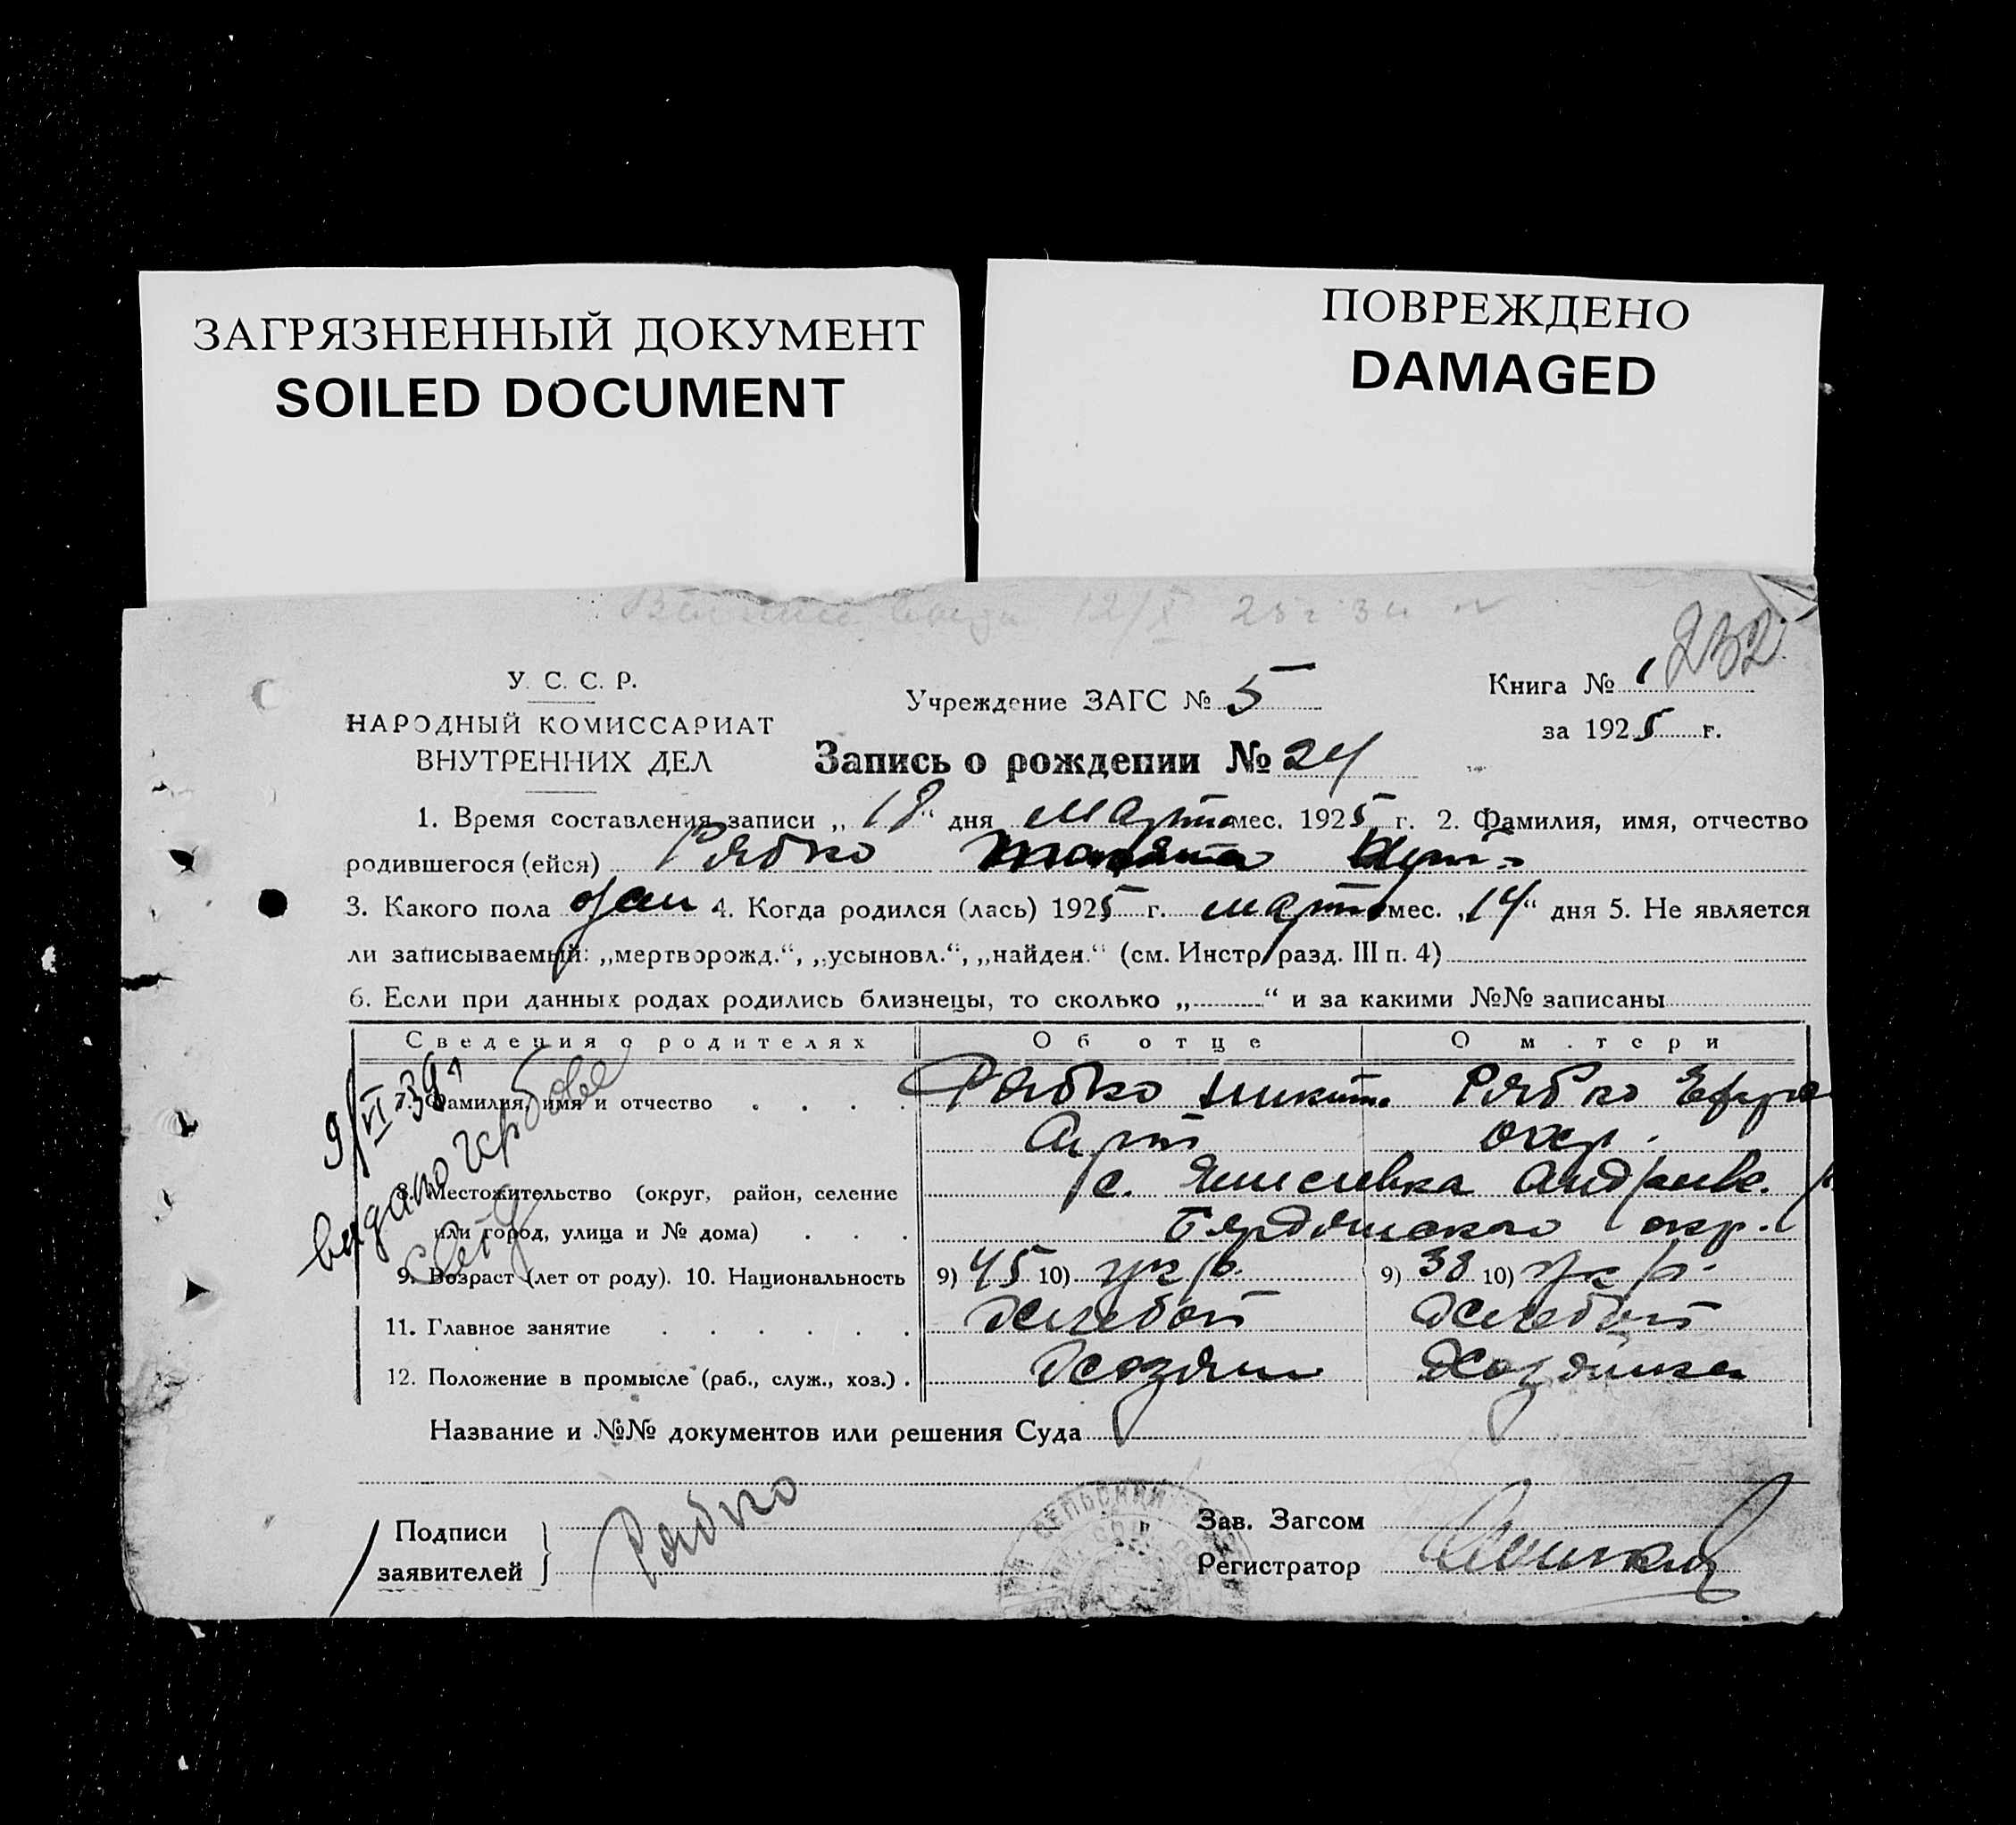 ЗАГРЯЗНЕННЫЙ ДОКУМЕНТ
SOILED DOCUMENT
ПОВРЕЖДЕНО
DAMAGED
12/X 25 г
232
У. С. С. Р.
НАРОДНЫЙ КОМИССАРИАТ
ВНУТРЕННИХ ДЕЛ
Учреждение ЗАГС № 5
Книга № 1
за 1925 г.
Запись о рождении № 24
1. Время составления записи „18“ дня марта мес. 1925 г. 2. Фамилия, имя, отчество
родившегося (ейся) Рябко
3. Какого пола жен 4. Когда родился (лась) 1925 г. март мес. „14“ дня 5. Не является
ли записываемый: „мертворожд.“, „усыновл.“, „найден.“ (см. Инстр. разд. III п. 4)
6. Если при данных родах родились близнецы, то сколько „ “ и за какими №№ записаны
Сведения о родителях Об отце О м.тери
7. Фамилия, имя и отчество Рябко Никит. Рябко Ефро
8. Местожительство (округ, район, селение с. Андреевс. р.
или город, улица и № дома) Бердянского окр.
9. Возраст (лет от роду). 10. Национальность 9) 45 10) укр. 9) 38 10) укр.
11. Главное занятие Хлебоп Хлебоп
12. Положение в промысле (раб., служ., хоз.) Хозяин Хозяйка
9/VI 39 г
видано гербове
свід
Название и №№ документов или решения Суда
Подписи
заявителей
Рябко
СЕЛЬСКИЙ
Зав. Загсом
Регистратор